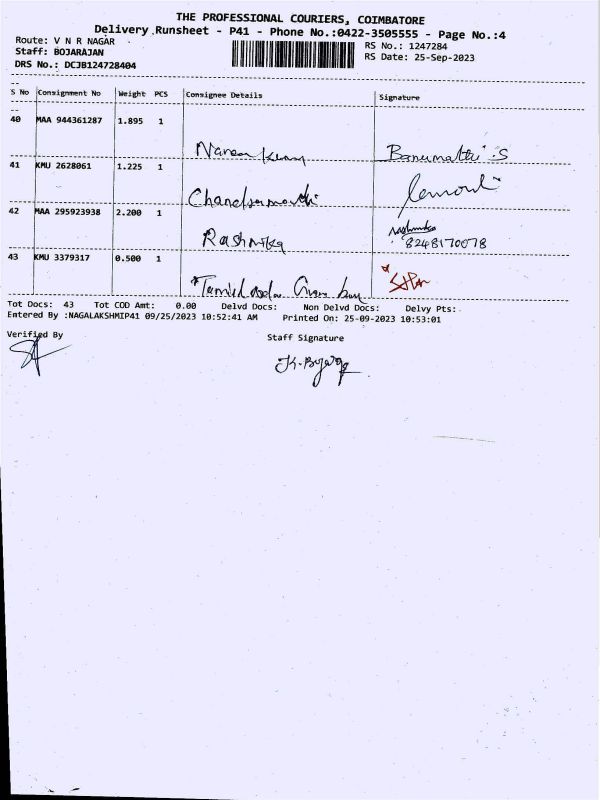 THE PROFESSIONAL COURIERS, COIMBATORE
Delivery Runsheet - P41 - Phone No.:0422-3505555 - Page No.:4
Route: V N R NAGAR
Staff: BOJARAJAN
DRS No.: DCJB124728404
RS No.: 1247284
RS Date: 25-Sep-2023
S No Consignment No Weight PCS Consignee Details Signature
40 MAA 944361287 1.895 1
Banumathi S
41 KMU 2628061 1.225 1
42 MAA 295923938 2.200 1
Rashmika 8248170078
43 KMU 3379317 0.500 1
Tot Docs: 43 Tot COD Amt: 0.00 Delvd Docs: Non Delvd Docs: Delvy Pts:
Entered By :NAGALAKSHMIP41 09/25/2023 10:52:41 AM Printed On: 25-09-2023 10:53:01
Verified By Staff Signature